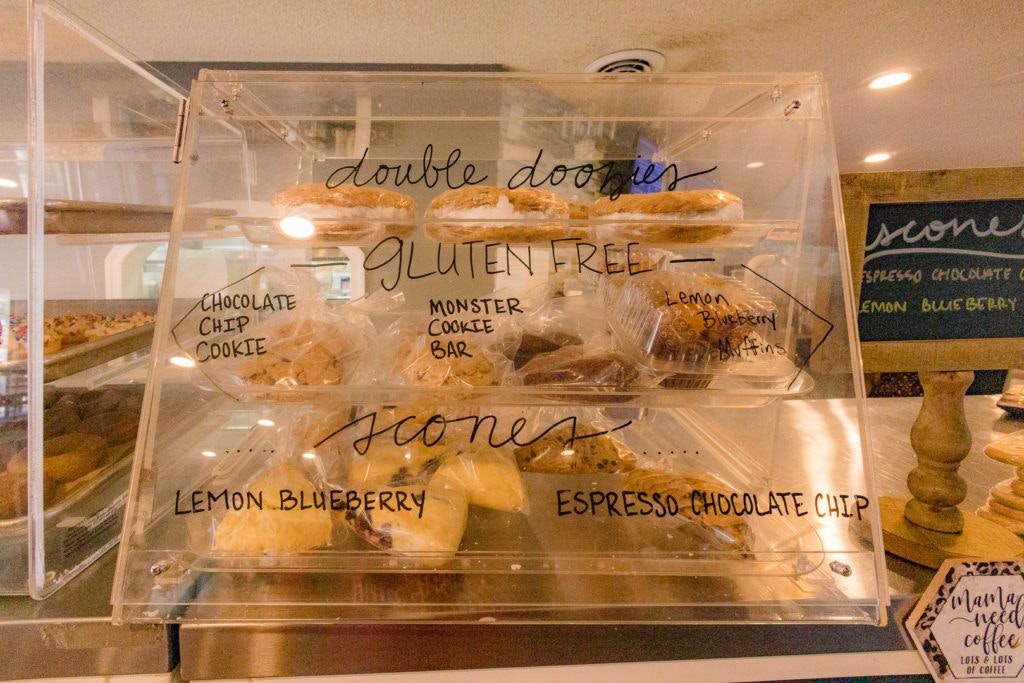 double doozies
— GLUTEN FREE —
CHOCOLATE
CHIP
COOKIE
MONSTER
COOKIE
BAR
Lemon
Blueberry
Muffins
scones
LEMON BLUEBERRY
ESPRESSO CHOCOLATE CHIP
scones
ESPRESSO CHOCOLATE C
LEMON BLUEBERRY
mama
need
coffee
LOTS & LOTS
OF COFFEE